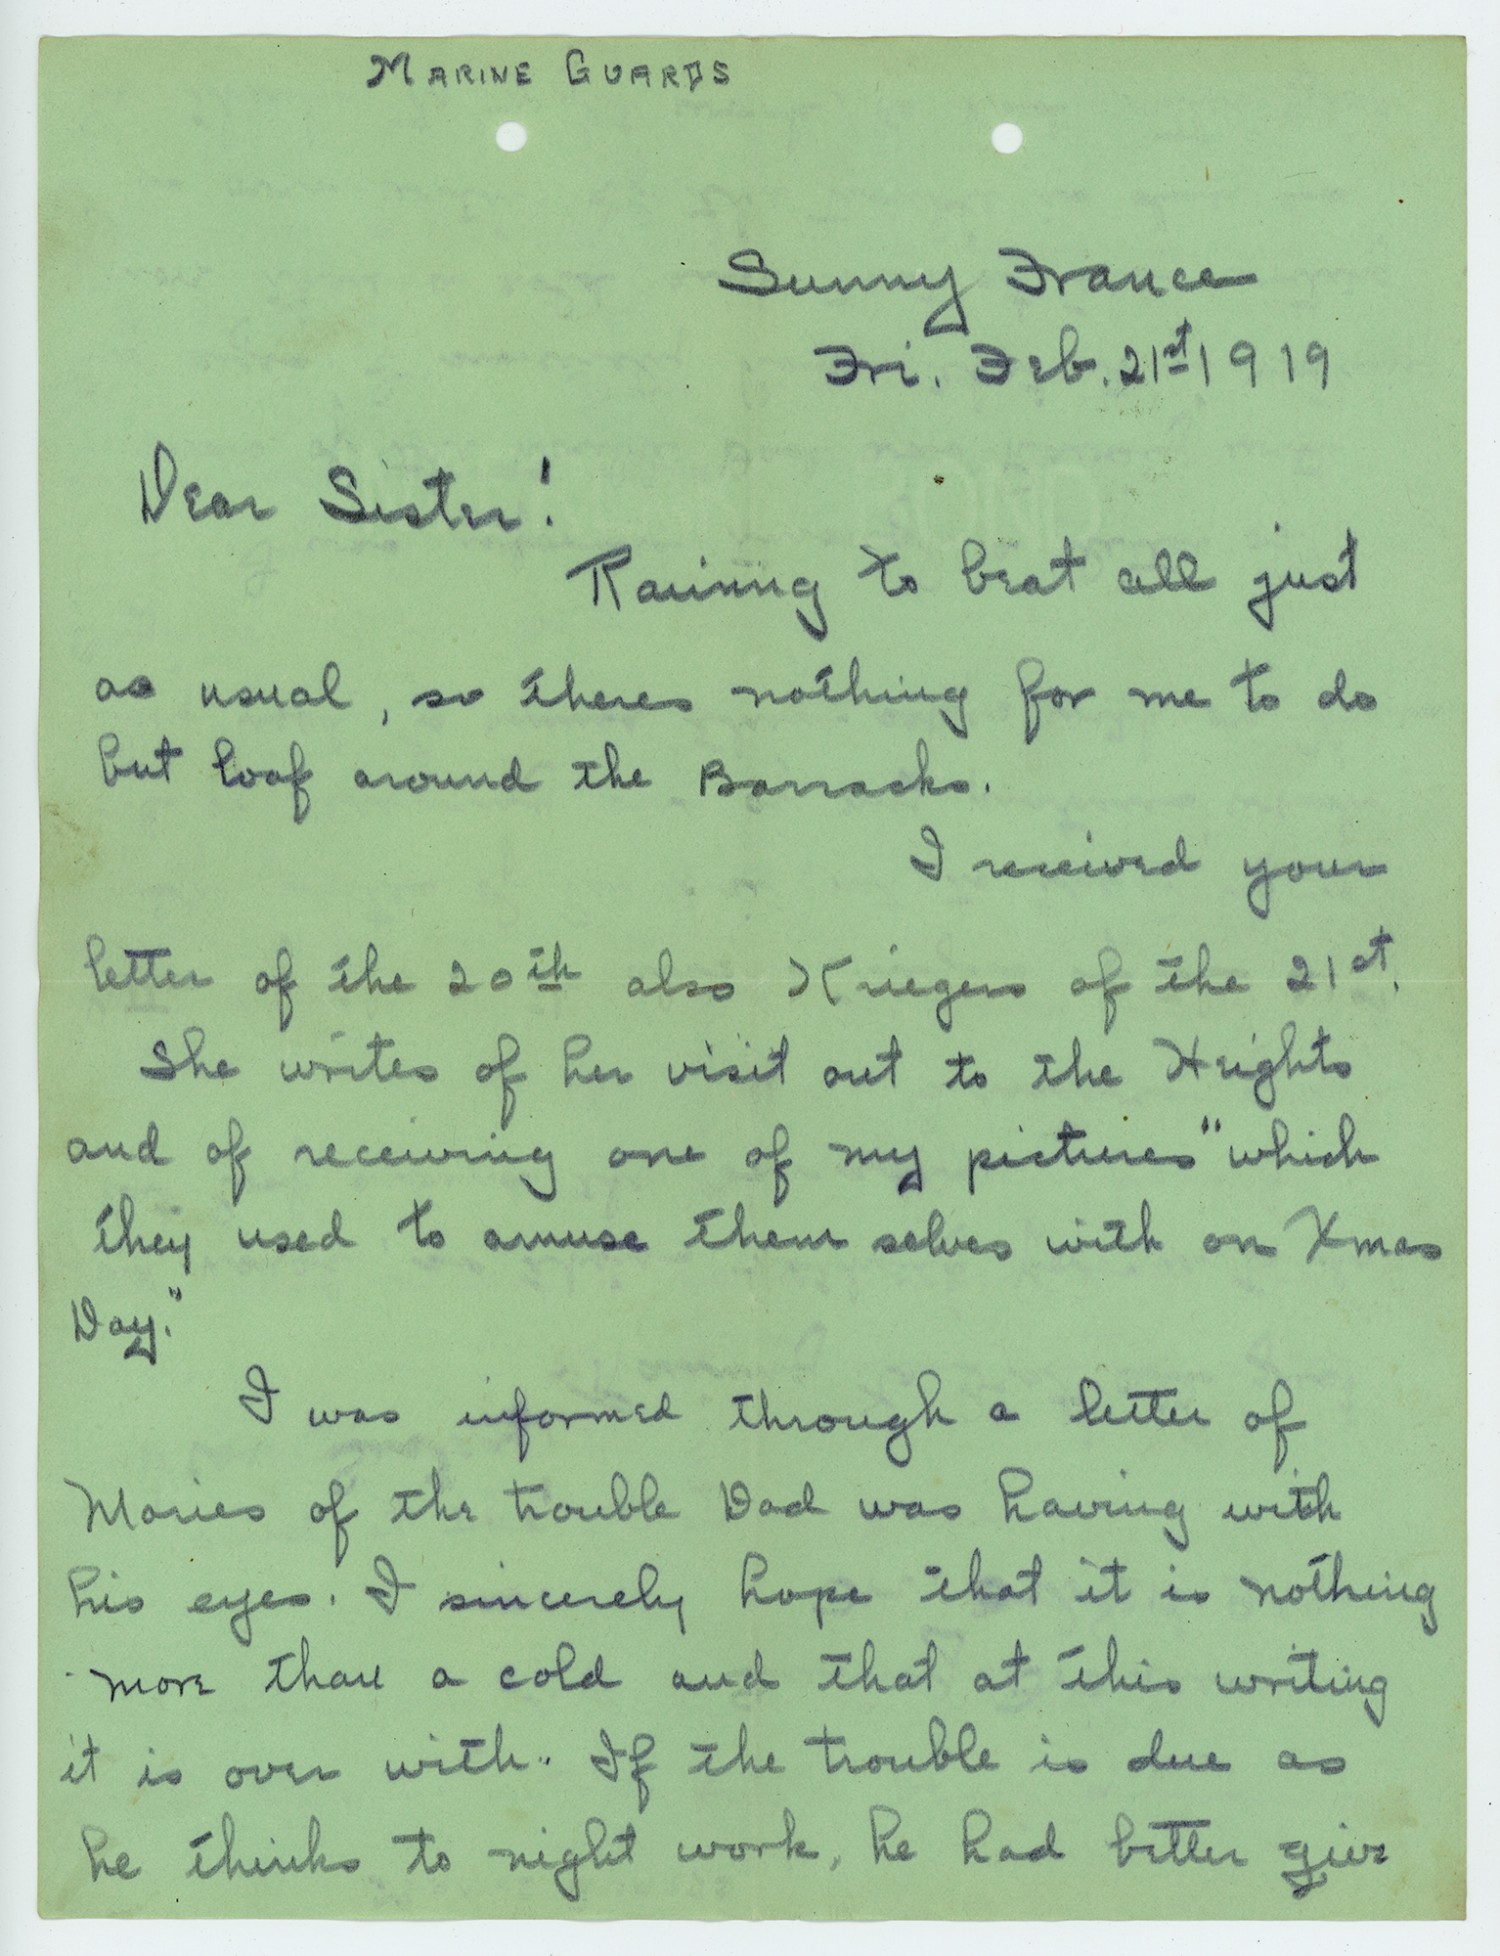 MARINE GUARDS
Sunny France
Fri. Feb. 21st 1919
Dear Sister!
Raining to beat all just
as usual, so theres nothing for me to do
but loaf around the Barracks.
I received your
letter of the 20th also Kriegers of the 21st.
She writes of her visit out to the Heights
and of receiving one of my pictures "which
they used to amuse them selves with on Xmas
Day."
I was informed through a letter of
Maries of the trouble Dad was having with
his eyes. I sincerely hope that it is nothing
more than a cold and that at this writing
it is over with.. If the trouble is due as
he thinks to night work, he had better give